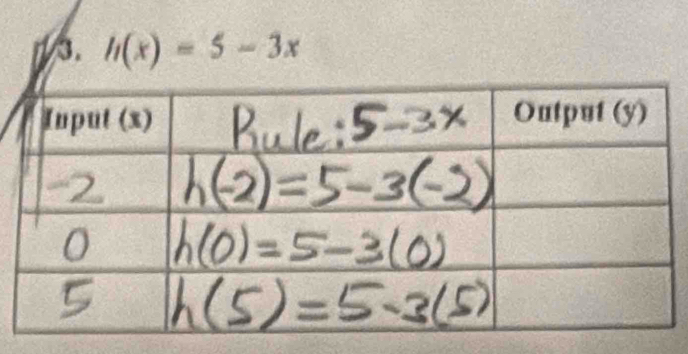 13. h(x) = 5 - 3x
Input (x) Rule: 5-3x Output (y)
-2 h(-2)=5-3(-2)
0 h(0)=5-3(0)
5 h(5)=5-3(5)